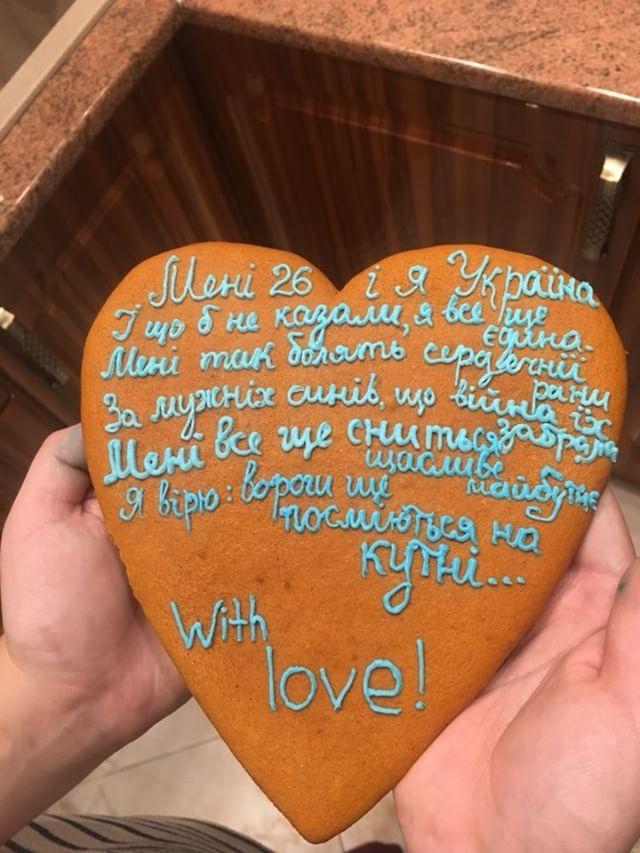 Мені 26 і я Україна
І що б не казали, я все ще єдина.
Мені так болять сердечнії рани
За мужніх синів, що війна їх забрала
Мені все ще сниться щасливе майбутнє
Я вірю: вороги ще посміються на
кутні...
With
love!